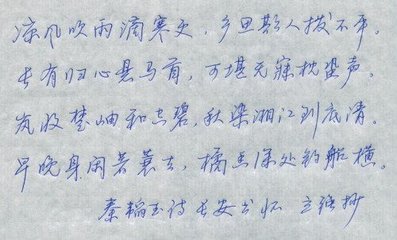 凉风吹雨滴寒更,乡思欺人拨不平。
长有归心悬马首,可堪无寐枕蛩声。
岚收楚岫和空碧,秋染湘江到底清。
早晚身闲著蓑去,橘香深处钓船横。
秦韬玉诗 长安书怀 立强抄